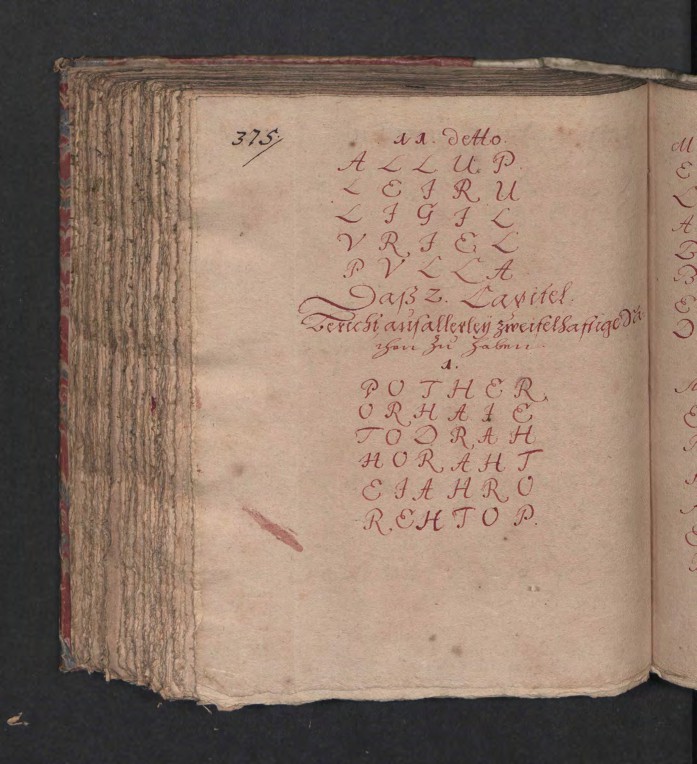 375.
11. detto.
A L L U P.
L E I R U
L I G I L
V R I E L
P V L L A
Daß 2. Capitel.
Bericht auf allerley zweifelhaftige Sa
chen zu haben
1.
P O T H E R.
O R H A I E
T O D R A H
H O R A H T
E I A H R O
R E H T O P.
M
E
L
A
B
B
E